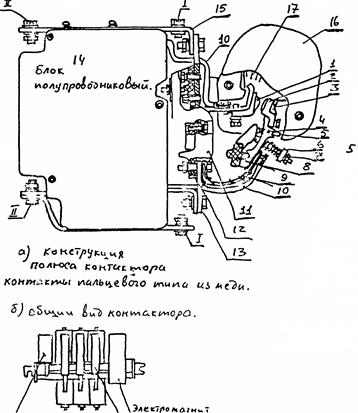 II
I
15
10
17
16
14
Блок
полупроводниковый.
1
2
3
4
5
6
8
9
10
5
11
12
13
II
I
а) конструкция
полюса контактора
контакты пальцевого типа из меди.
б) общий вид контактора.
Электромагнит